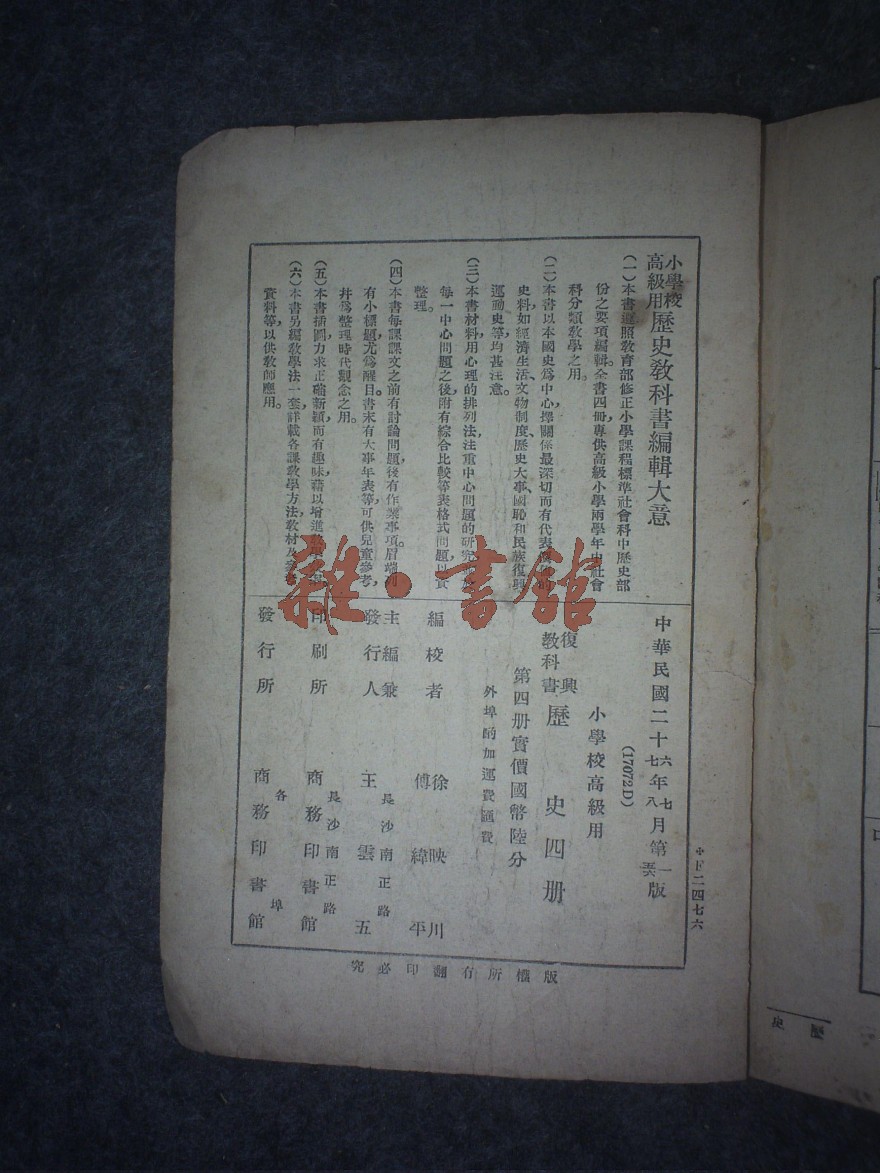 小學校
高級用 歷史教科書編輯大意
(一)本書遵照教育部修正小學課程標準社會科中歷史部
份之要項編輯。全書四冊專供高級小學兩學年中社會
科分類教學之用。
(二)本書以本國史爲中心,擇關係最深切而有代表
史料,如經濟生活、文物制度、歷史大事、國恥和民族復興
運動史等,均甚注意。
(三)本書材料用心理的排列法,注重中心問題的研究
每一中心問題之後,附有綜合比較等表格式問題,以資
整理。
(四)本書每課課文之前有討論問題,後有作業事項。眉端列
有小標題,尤爲醒目。書末有大事年表等,可供兒童參考,
幷爲整理時代觀念之用。
(五)本書插圖力求正確新穎而有趣味,藉以增進
(六)本書另編教學法一套,詳載各課教學方法、教材及參考
資料等,以供教師應用。
中華民國二十六年七月第一版
七 八
(17072D)
小學校高級用
復興
教科書 歷史四冊
第四冊實價國幣陸分
外埠酌加運費匯費
編校者 徐映川
傅緯平
主編兼
發行人 王雲五
長沙南正路
印刷所 商務印書館
長沙南正路
發行所 商務印書館
各埠
版權所有翻印必究
下二四七六
雜·書館
歷史